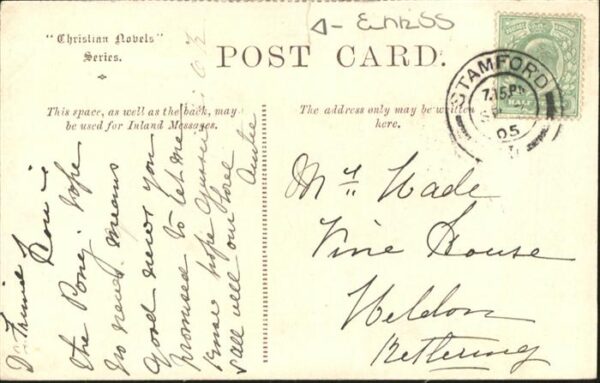 "Christian Novels"
Series.
POST CARD.
STAMFORD
7.15 PM
05
HALF
This space, as well as the back, may
be used for Inland Messages.
The address only may be written
here.
Mrs Wade
Vine House
Weldon
Kettering
Dr Friend
How is
the Pony. hope
no news means
good news you
promised to let me
know hope Queenie
& all well our love
Auntie